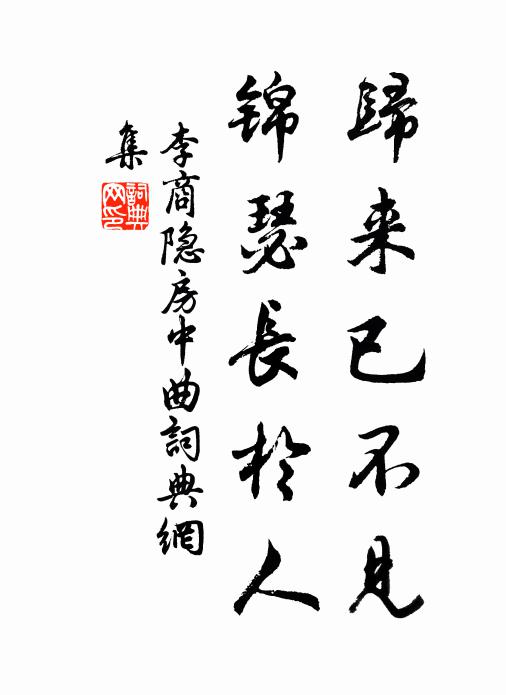 歸来已不見
锦瑟長於人
李商隐房中曲詞典網
集
詞典
网印